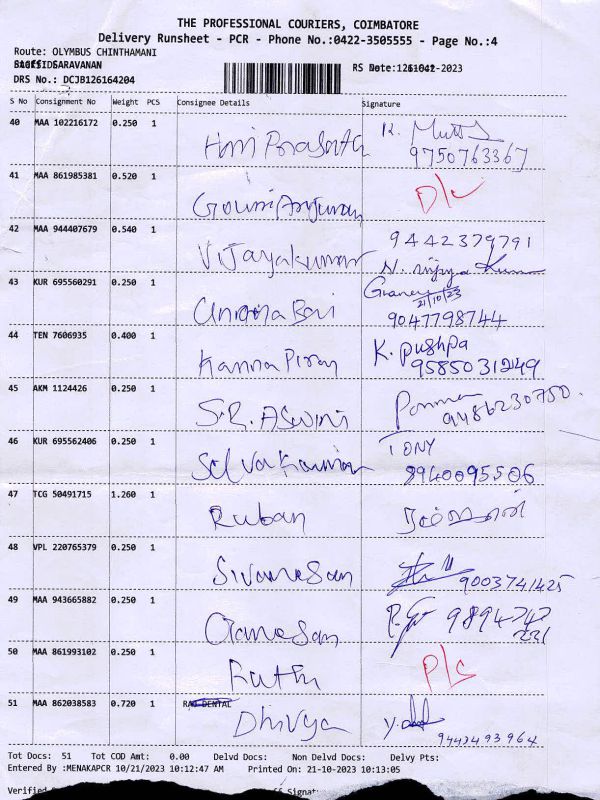 THE PROFESSIONAL COURIERS, COIMBATORE
Delivery Runsheet - PCR - Phone No.:0422-3505555 - Page No.:4
Route: OLYMBUS CHINTHAMANI
SARAVANAN
DRS No.: DCJB126164204
S No Consignment No Weight PCS Consignee Details Signature
40 MAA 102216172 0.250 1
Hari Prasath K.
9750763367
41 MAA 861985381 0.520 1
D/c
42 MAA 944407679 0.540 1 9442379791
Vijayakumar N. Vijaya Kumar
43 KUR 695560291 0.250 1
21/10/23
9047798744
44 TEN 7606935 0.400 1 K. pushpa
9585031249
45 AKM 1124426 0.250 1
S.R. ASwini 9486230750.
46 KUR 695562406 0.250 1 TONY
Selvakumar 8940095506
47 TCG 50491715 1.260 1
Ruban
48 VPL 220765379 0.250 1
Sivanesan 9003741425
49 MAA 943665882 0.250 1 9894747
Ganesan 231
50 MAA 861993102 0.250 1
D/c
51 MAA 862038583 0.720 1 RAJ DENTAL
Dhivya
9442493964
Tot Docs: 51 Tot COD Amt: 0.00 Delvd Docs: Non Delvd Docs: Delvy Pts:
Entered By :MENAKAPCR 10/21/2023 10:12:47 AM Printed On: 21-10-2023 10:13:05